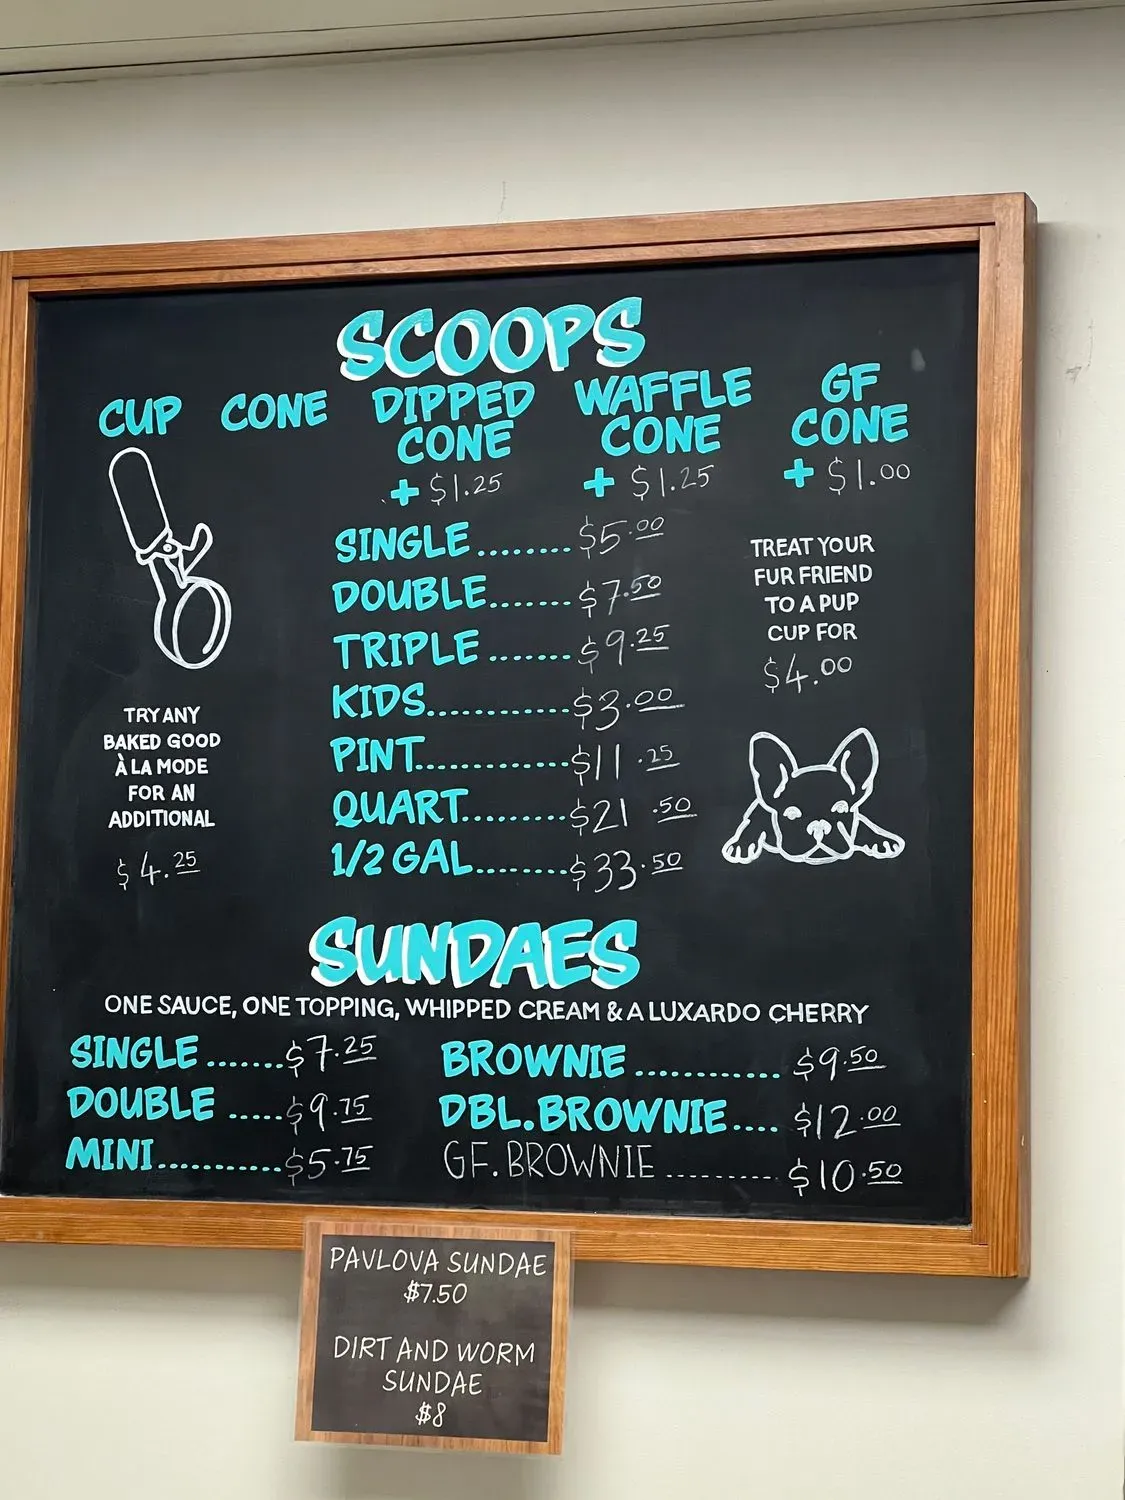 SCOOPS
CUP CONE DIPPED CONE + $1.25 WAFFLE CONE + $1.25 GF CONE + $1.00
SINGLE........$5.00
DOUBLE.......$7.50
TRIPLE.......$9.25
KIDS............$3.00
PINT.............$11.25
QUART.........$21.50
1/2 GAL........$33.50
TRY ANY
BAKED GOOD
À LA MODE
FOR AN
ADDITIONAL
$4.25
TREAT YOUR
FUR FRIEND
TO A PUP
CUP FOR
$4.00
SUNDAES
ONE SAUCE, ONE TOPPING, WHIPPED CREAM & A LUXARDO CHERRY
SINGLE.......$7.25
DOUBLE.....$9.75
MINI...........$5.75
BROWNIE............$9.50
DBL. BROWNIE....$12.00
GF. BROWNIE..........$10.50
PAVLOVA SUNDAE
$7.50
DIRT AND WORM
SUNDAE
$8